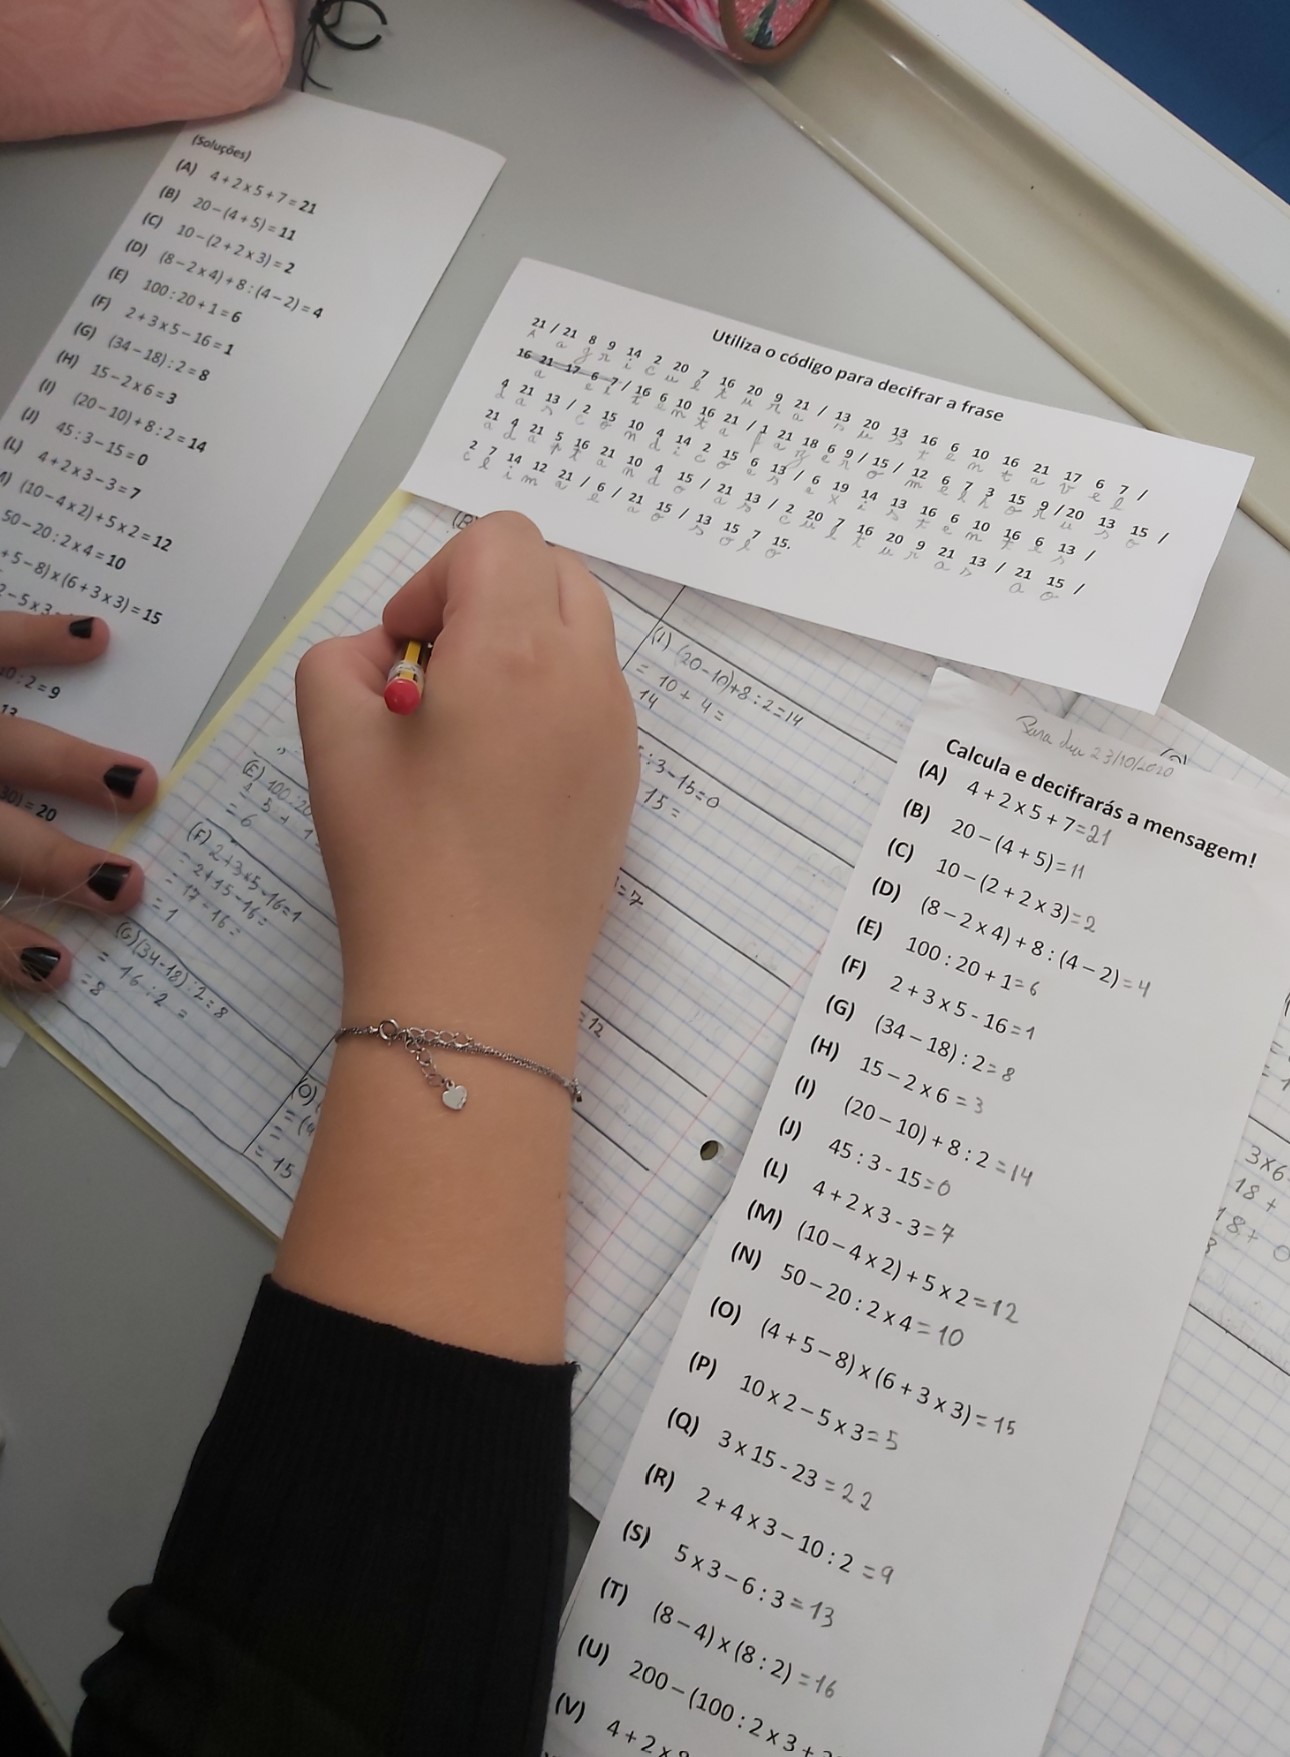 (Soluções)
(A) 4 + 2 x 5 + 7 = 21
(B) 20 – (4 + 5) = 11
(C) 10 – (2 + 2 x 3) = 2
(D) (8 – 2 x 4) + 8 : (4 – 2) = 4
(E) 100 : 20 + 1 = 6
(F) 2 + 3 x 5 – 16 = 1
(G) (34 – 18) : 2 = 8
(H) 15 – 2 x 6 = 3
(I) (20 – 10) + 8 : 2 = 14
(J) 45 : 3 – 15 = 0
(L) 4 + 2 x 3 – 3 = 7
(10 – 4 x 2) + 5 x 2 = 12
50 – 20 : 2 x 4 = 10
+ 5 – 8) x (6 + 3 x 3) = 15
2 – 5 x 3
10 : 2 = 9
13
30) = 20
Utiliza o código para decifrar a frase
21 / 21 8 9 14 2 20 7 16 20 9 21 / 13 20 13 16 6 10 16 21 17 6 7 /
A a g r i c u l t u r a s u s t e n t a v e l
16 21 17 6 7 / 16 6 10 16 21 / 1 21 18 6 9 / 15 / 12 6 7 3 15 9 / 20 13 15 /
t e n t a f a z e r o m e l h o r u s o
4 21 13 / 2 15 10 4 14 2 15 6 13 / 6 19 14 13 16 6 10 16 6 13 /
d a s c o n d i c o e s e x i s t e n t e s
21 4 21 5 16 21 10 4 15 / 21 13 / 2 20 7 16 20 9 21 13 / 21 15 /
a d a p t a n d o a s c u l t u r a s a o
2 7 14 12 21 / 6 / 21 15 / 13 15 7 15.
c l i m a e a o s o l o
(I) (20-10)+8:2=14
= 10 + 4 =
14
:3-15=0
15 =
=7
=12
(E) 100:20
= 5 + 1
= 6
(F) 2+3x5-16=1
= 2+15-16=
= 17-16=
= 1
(G) (34-18):2=8
= 16:2 =
= 8
(O)
= 15
23/10/2020
Calcula e decifrarás a mensagem!
(A) 4 + 2 x 5 + 7 = 21
(B) 20 – (4 + 5) = 11
(C) 10 – (2 + 2 x 3) = 2
(D) (8 – 2 x 4) + 8 : (4 – 2) = 4
(E) 100 : 20 + 1 = 6
(F) 2 + 3 x 5 - 16 = 1
(G) (34 – 18) : 2 = 8
(H) 15 – 2 x 6 = 3
(I) (20 – 10) + 8 : 2 = 14
(J) 45 : 3 - 15 = 0
(L) 4 + 2 x 3 - 3 = 7
(M) (10 – 4 x 2) + 5 x 2 = 12
(N) 50 – 20 : 2 x 4 = 10
(O) (4 + 5 – 8) x (6 + 3 x 3) = 15
(P) 10 x 2 – 5 x 3 = 5
(Q) 3 x 15 - 23 = 22
(R) 2 + 4 x 3 – 10 : 2 = 9
(S) 5 x 3 – 6 : 3 = 13
(T) (8 – 4) x (8 : 2) = 16
(U) 200 – (100 : 2 x 3 +
(V) 4 + 2 x
3x6
18 +
18 + 0